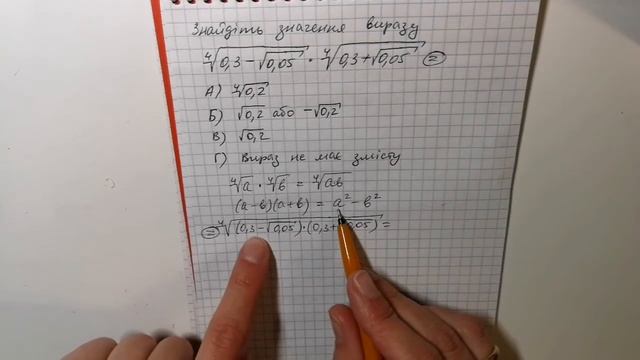 Знайдіть значення виразу
∜(0,3 − √0,05) · ∜(0,3 + √0,05) =
А) ∜0,2
Б) √0,2 або −√0,2
В) √0,2
Г) Вираз не має змісту
∜a · ∜b = ∜ab
(a − b)(a + b) = a² − b²
= ∜(0,3 − √0,05) · (0,3 + 0,05) =